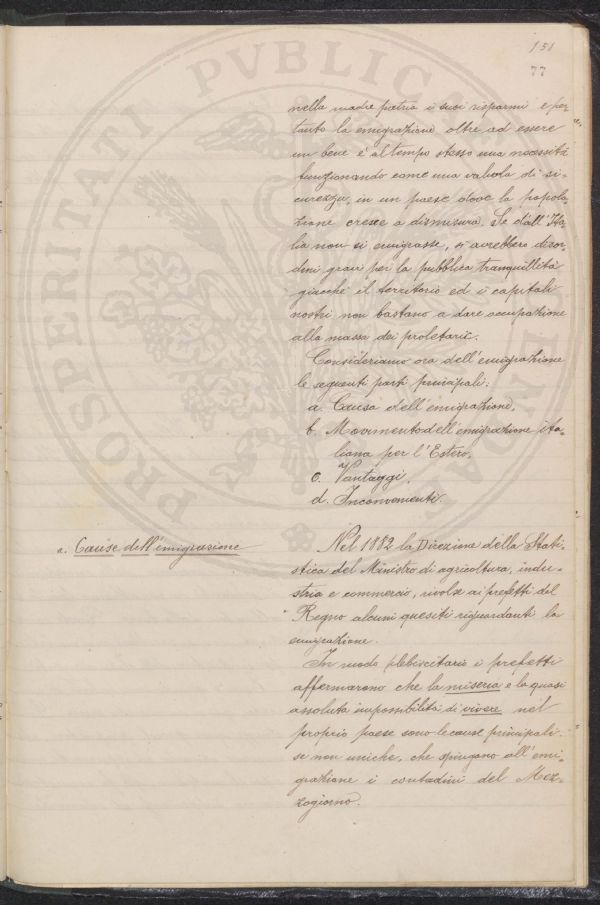 151
77
nella madre patria i suoi risparmi e per
tanto la emigrazione oltre ad essere
un bene è al tempo stesso una necessità
funzionando come una valvola di si-
curezza, in un paese dove la popola-
zione cresce a dismisura. Se dall'Ita-
lia non si emigrasse, si avrebbero disor-
dini gravi per la pubblica tranquillità
giacché il territorio ed i capitali
nostri non bastano a dare occupazione
alla massa dei proletarii.
Consideriamo ora dell'emigrazione
le seguenti parti principali:
a. Causa dell'emigrazione.
b. Movimento dell'emigrazione ita-
liana per l'Estero.
c. Vantaggi.
d. Inconvenienti.
a. Cause dell'emigrazione
Nel 1882 la Direzione della Stati-
stica del Ministro di agricoltura, indu-
stria e commercio, rivolse ai prefetti del
Regno alcuni quesiti riguardanti la
emigrazione.
In modo plebiscitario i prefetti
affermarono che la miseria e la quasi
assoluta impossibilità di vivere nel
proprio paese sono le cause principali.
se non uniche, che spingano all'emi-
grazione i contadini del Mez-
zogiorno.
PROSPERITATI PVBLICAE